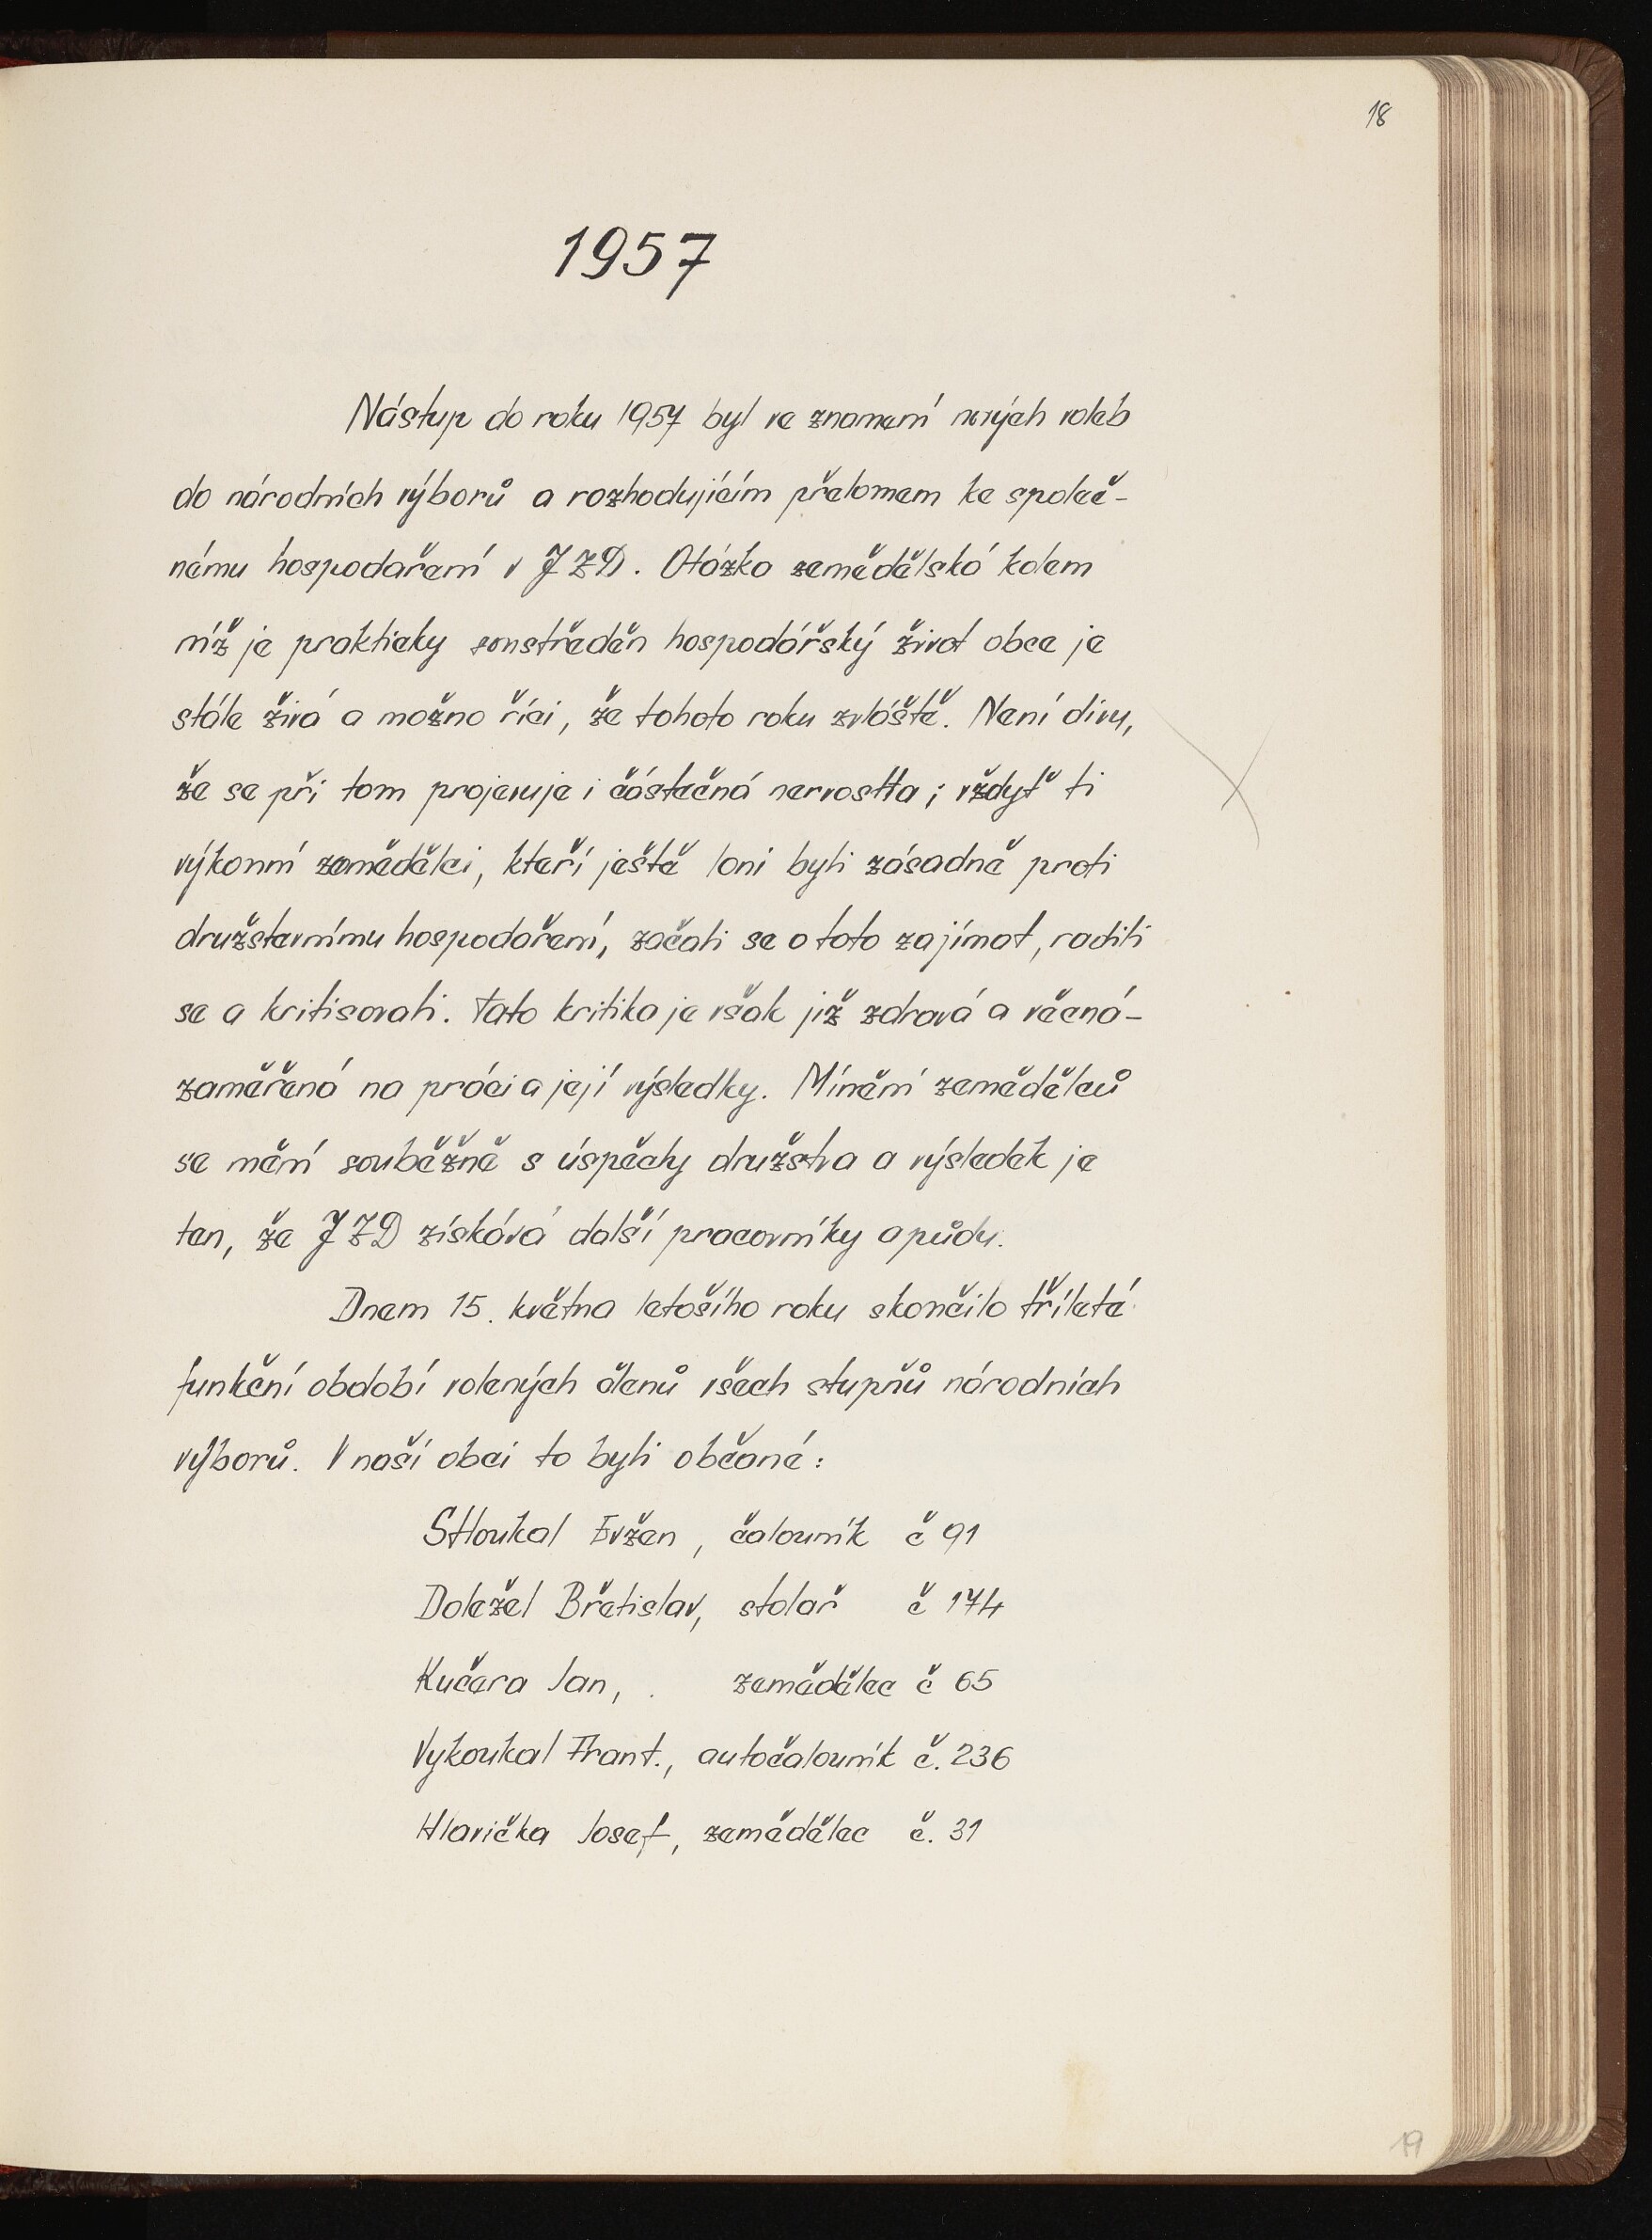 18
1957
Nástup do roku 1957 byl ve znamení nových voleb
do národních výborů a rozhodujícím přelomem ke společ-
nému hospodaření v JZD. Otázka zemědělská kolem
níž je prakticky soustředěn hospodářský život obce je
stále živá a možno říci, že tohoto roku zvláště. Není divu,
že se při tom projevuje i částečná nervosita; vždyť ti
výkonní zemědělci, kteří ještě loni byli zásadně proti
družstevnímu hospodaření, začali se o toto zajímat, raditi
se a kritisovati. Tato kritika je však již zdravá a věcná-
zaměřená na práci a její výsledky. Mínění zemědělců
se mění souběžně s úspěchy družstva a výsledek je
ten, že JZD získává další pracovníky a půdu.
Dnem 15. května letošího roku skončilo tříleté
funkční období volených členů všech stupňů národních
výborů. V naší obci to byli občané:
Stloukal Evžen, čalouník č 91
Doležel Břetislav, stolař č 174
Kučera Jan, zemědělec č 65
Vykoukal Frant., autočalouník č. 236
Hlavička Josef, zemědělec č. 31
19